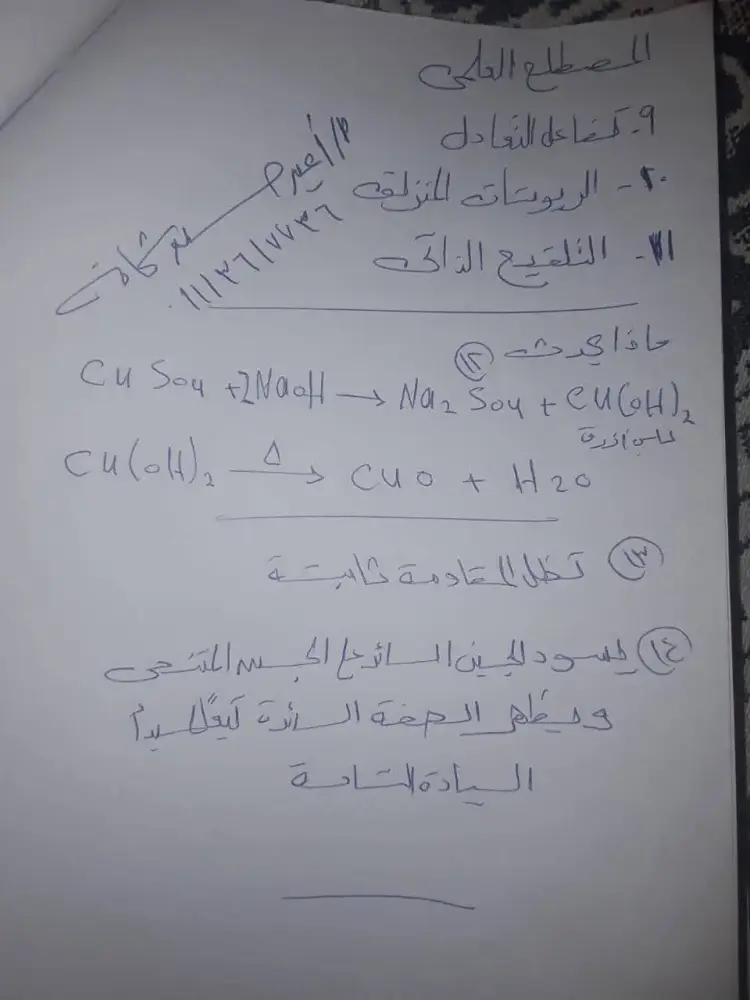 المصطلح العلمى
٩- تفاعل التعادل
١٠- الريوستات المنزلق
١١- التلقيح الذاتى
م/أميرة بركات
٠١١١٣٦١٧٧٣٦
ماذا يحدث
(١٢)
CuSo4 + 2NaoH → Na2 So4 + Cu(oH)2
Cu(oH)2 △→ CuO + H2O
(١٣) تظل المقاومة ثابتة
(١٤) يسود الجين السائد على الجين المتنحى
وتظهر الصفة السائدة تبعًا لمبدأ
السيادة التامة